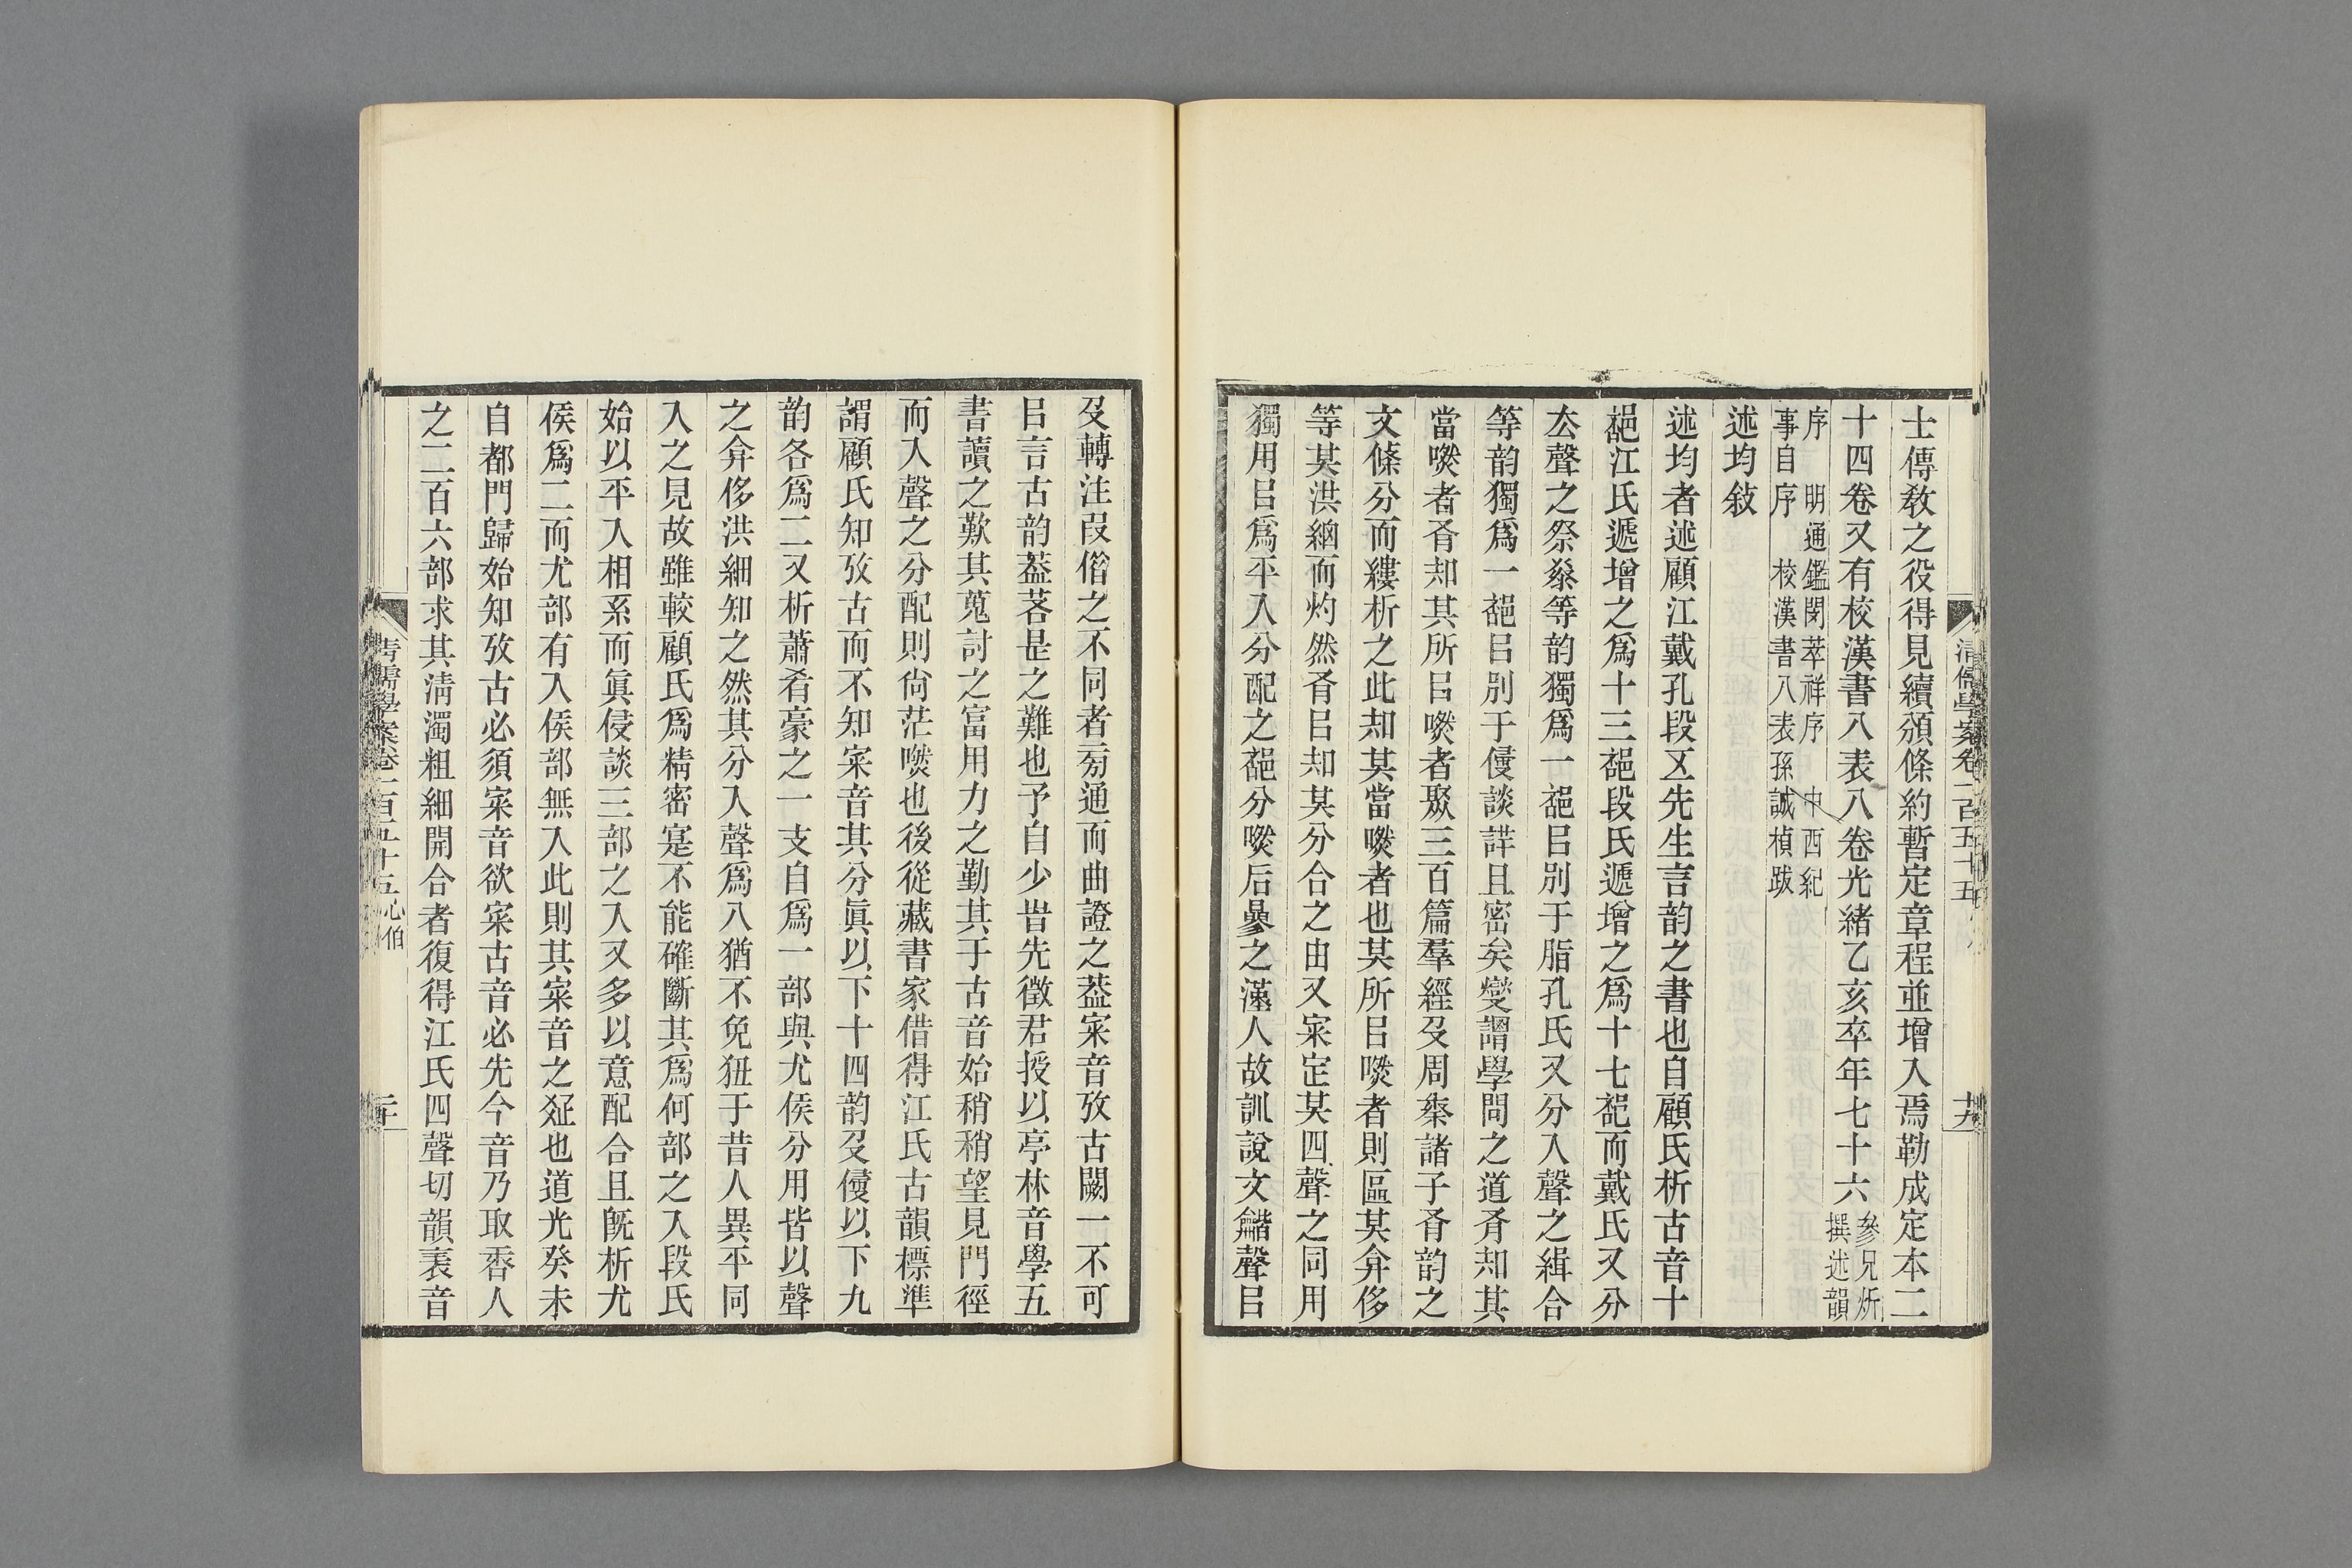 士傳敎之役得見續頒條約暫定章程並增入焉勒成定本二
十四卷又有校漢書八表八卷光緒乙亥卒年七十六參兄炘撰述韻
序 明通鑑閔萃祥序 中西紀
事自序 校漢書八表孫誠楨跋
述均敍
述均者述顧江戴孔段五先生言韵之書也自顧氏析古音十
部江氏遞增之爲十三部段氏遞增之爲十七部而戴氏又分
去聲之祭泰等韵獨爲一部㠯別于脂孔氏又分入聲之緝合
等韵獨爲一部㠯別于侵談詳且密矣燮謂學問之道有知其
當然者有知其所㠯然者聚三百篇羣經及周秦諸子有韵之
文條分而縷析之此知其當然者也其所㠯然者則區其弇侈
等其洪細而灼然有㠯知其分合之由又宷定其四聲之同用
獨用㠯爲平入分配之部分然后參之漢人故訓說文龤聲㠯
及轉注叚借之不同者㫄通而曲證之葢宷音攷古闕一不可
㠯言古韵葢若是之難也予自少時先徵君授以亭林音學五
書讀之歎其蒐討之富用力之勤其于古音始稍稍望見門徑
而入聲之分配則尙茫然也後從藏書家借得江氏古韻標準
謂顧氏知攷古而不知宷音其分眞以下十四韵及侵以下九
韵各爲二又析蕭肴豪之一支自爲一部與尤侯分用皆以聲
之弇侈洪細知之然其分入聲爲八猶不免狃于昔人異平同
入之見故雖較顧氏爲精密寔不能確斷其爲何部之入段氏
始以平入相系而眞侵談三部之入又多以意配合且旣析尤
侯爲二而尤部有入侯部無入此則其宷音之疏也道光癸未
自都門歸始知攷古必須宷音欲宷古音必先今音乃取唇人
之二百六部求其淸濁粗細開合者復得江氏四聲切韻表音
淸儒學案卷一百五十五 心伯